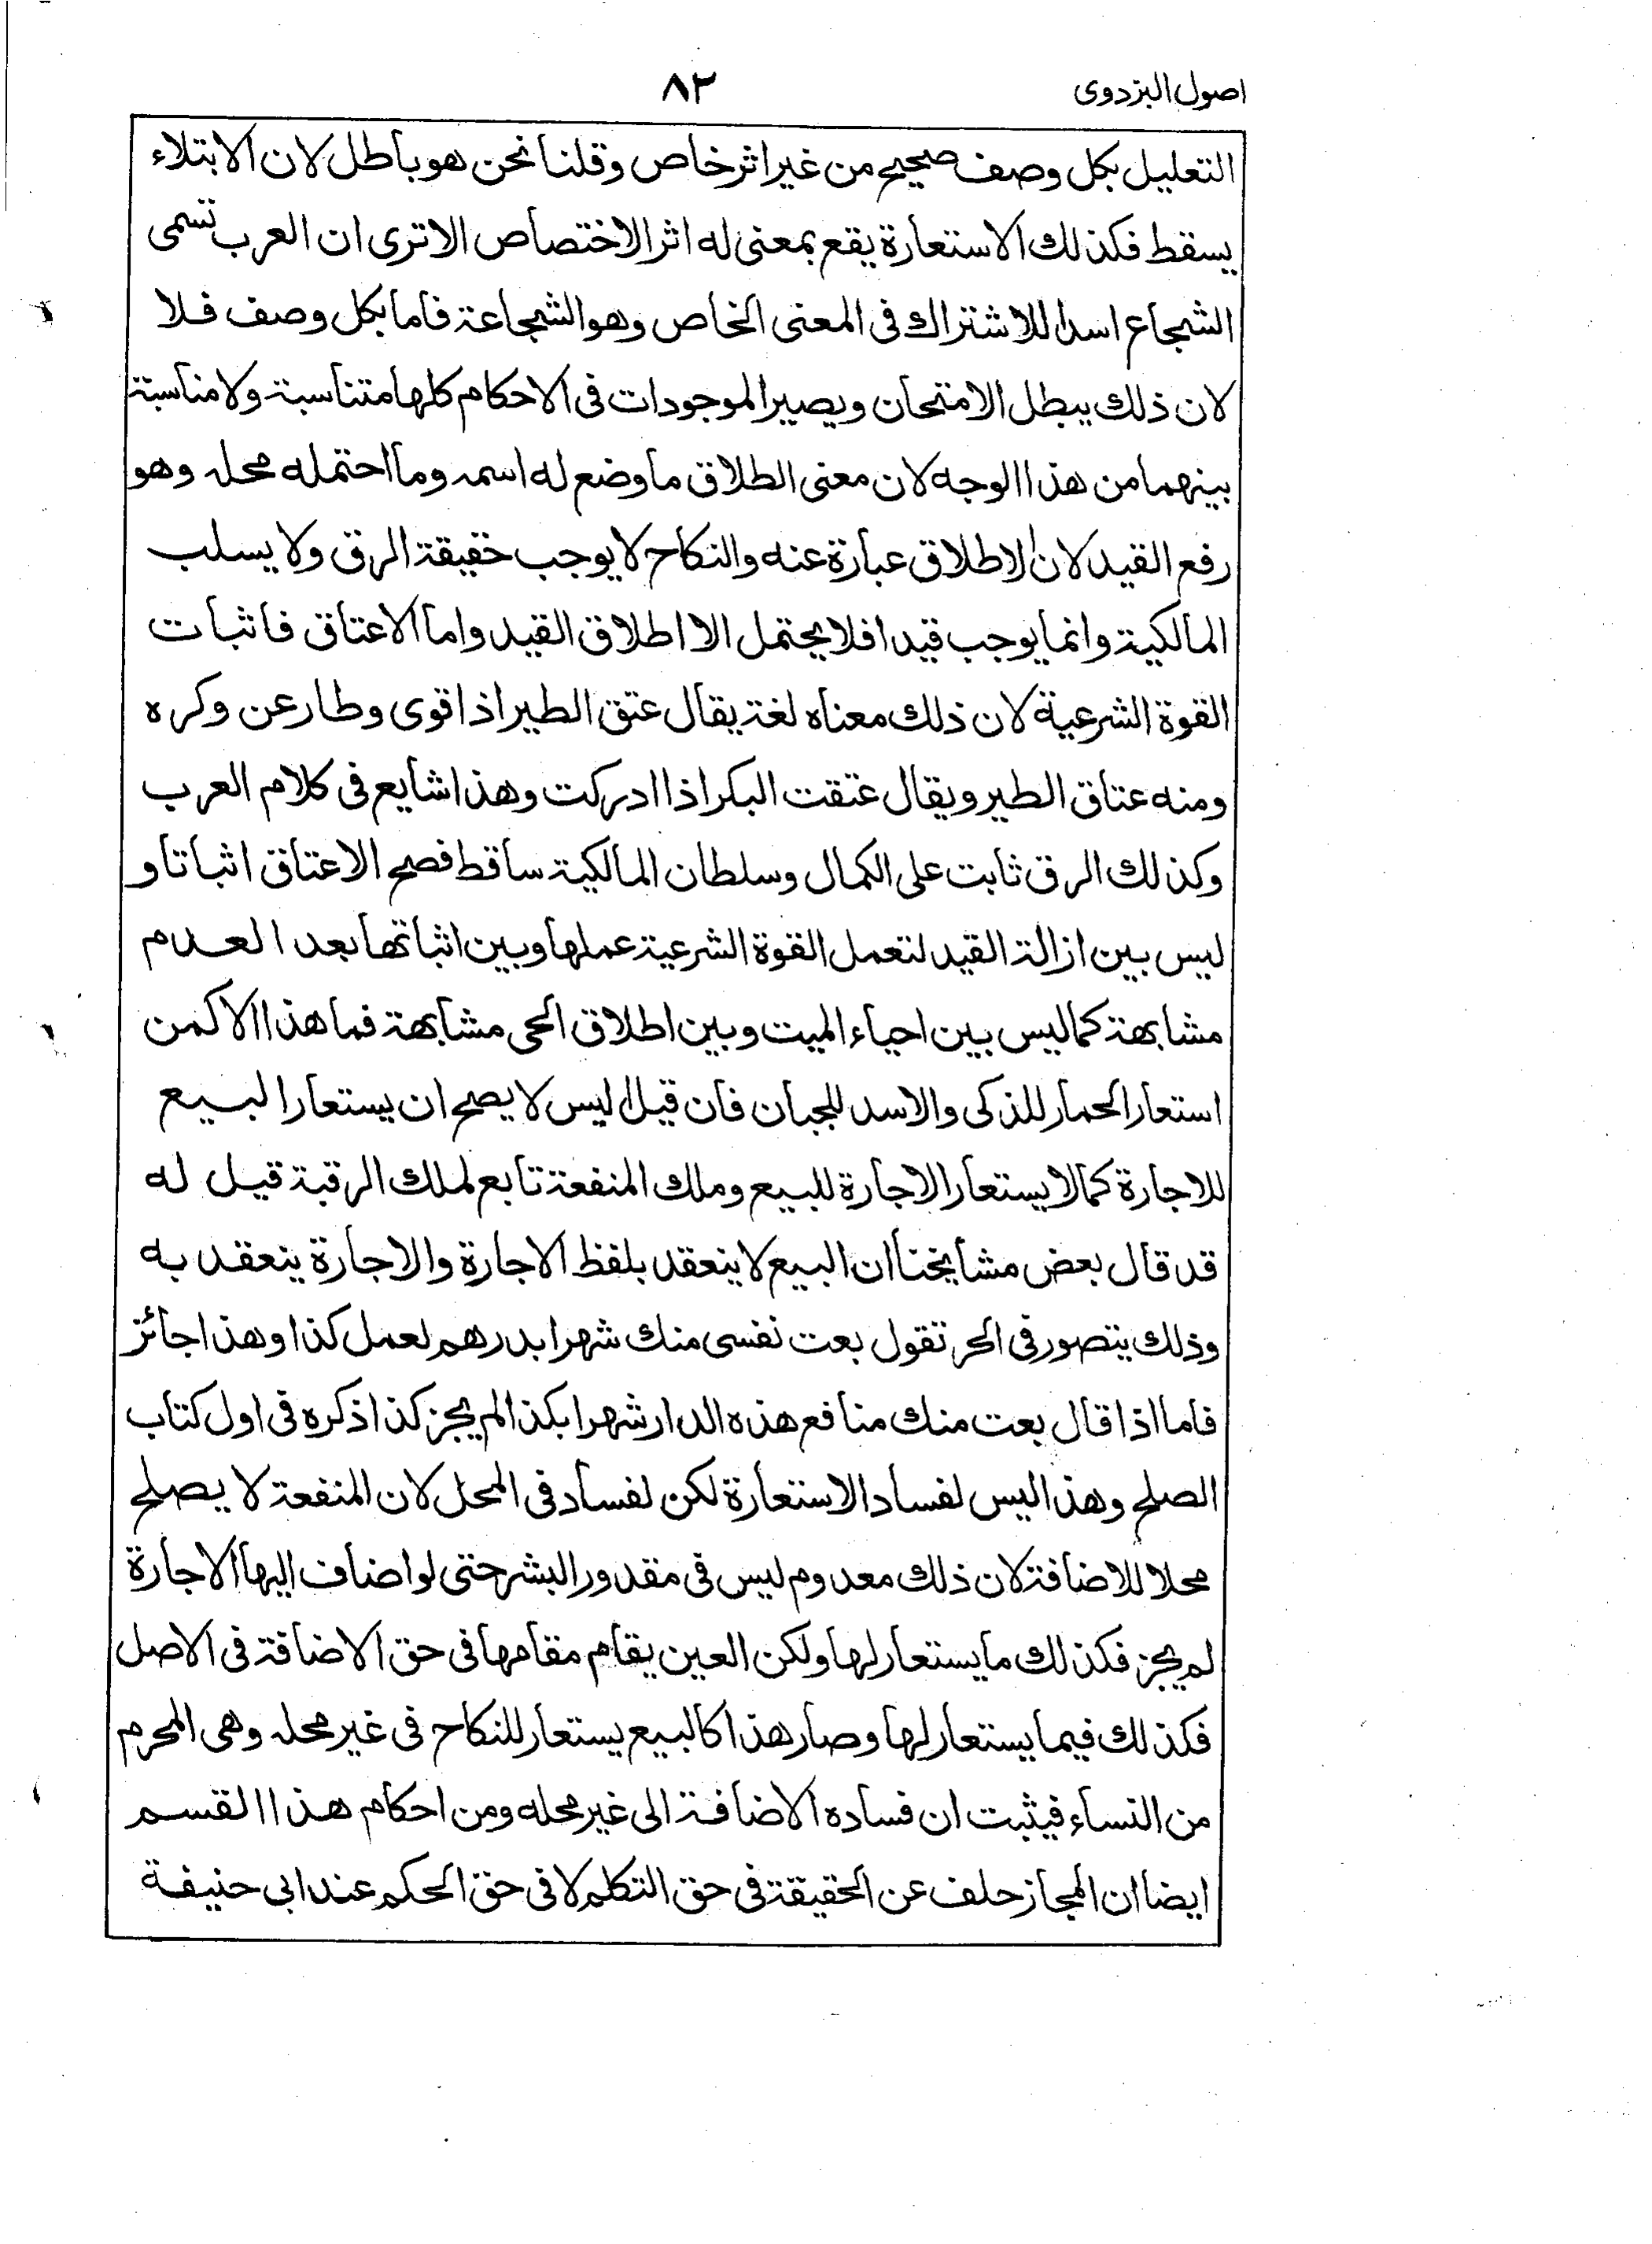 اصول البزدوی
٨٣
التعليل بكل وصف صحيح من غير اثر خاص وقلنا نحن هو باطل لان الابتلاء
يسقط فكذلك الاستعارة يقع بمعنى له اثر الاختصاص الا ترى ان العرب تسمى
الشجاع اسدا للاشتراك فى المعنى الخاص وهو الشجاعة فاما بكل وصف فلا
لان ذلك يبطل الامتحان ويصير الموجودات فى الاحكام كلها متناسبة ولا مناسبة
بينهما من هذا الوجه لان معنى الطلاق ما وضع له اسمه وما احتمله محله وهو
رفع القيد لان الاطلاق عبارة عنه والنكاح لا يوجب حقيقة الرق ولا يسلب
المالكية وانما يوجب قيدا فلا يحتمل الا اطلاق القيد واما الاعتاق فاثبات
القوة الشرعية لان ذلك معناه لغة يقال عتق الطير اذا قوى وطار عن وكره
ومنه عتاق الطير ويقال عتقت البكر اذا ادركت وهذا شايع فى كلام العرب
وكذلك الرق ثابت على الكمال وسلطان المالكية ساقط فصح الاعتاق اثباتا و
ليس بين ازالة القيد لتعمل القوة الشرعية عملها وبين اثباتها بعد العدم
مشابهة كما ليس بين احياء الميت وبين اطلاق الحى مشابهة فما هذا الا كمن
استعار الحمار للذكى والاسد للجبان فان قيل اليس لا يصح ان يستعار البيع
للاجارة كما لا يستعار الاجارة للبيع وملك المنفعة تابع لملك الرقبة قيل له
قد قال بعض مشايخنا ان البيع لا ينعقد بلفظ الاجارة والاجارة ينعقد به
وذلك يتصور فى الحر تقول بعت نفسى منك شهرا بدرهم لعمل كذا وهذا جائز
فاما اذا قال بعت منك منافع هذه الدار شهرا بكذا لم يجز كذا ذكره فى اول كتاب
الصلح وهذا ليس لفساد الاستعارة لكن لفساد فى المحل لان المنفعة لا يصلح
محلا للاضافة لان ذلك معدوم ليس فى مقدور البشر حتى لو اضاف اليها الاجارة
لم يجز فكذلك ما يستعار لها ولكن العين يقام مقامها فى حق الاضافة فى الاصل
فكذلك فيما يستعار لها وصار هذا كالبيع يستعار للنكاح فى غير محله وهى المحرم
من النساء فيثبت ان فساده الاضافة الى غير محله ومن احكام هذا القسم
ايضا ان المجاز حلف عن الحقيقة فى حق التكلم لا فى حق الحكم عند ابى حنيفة